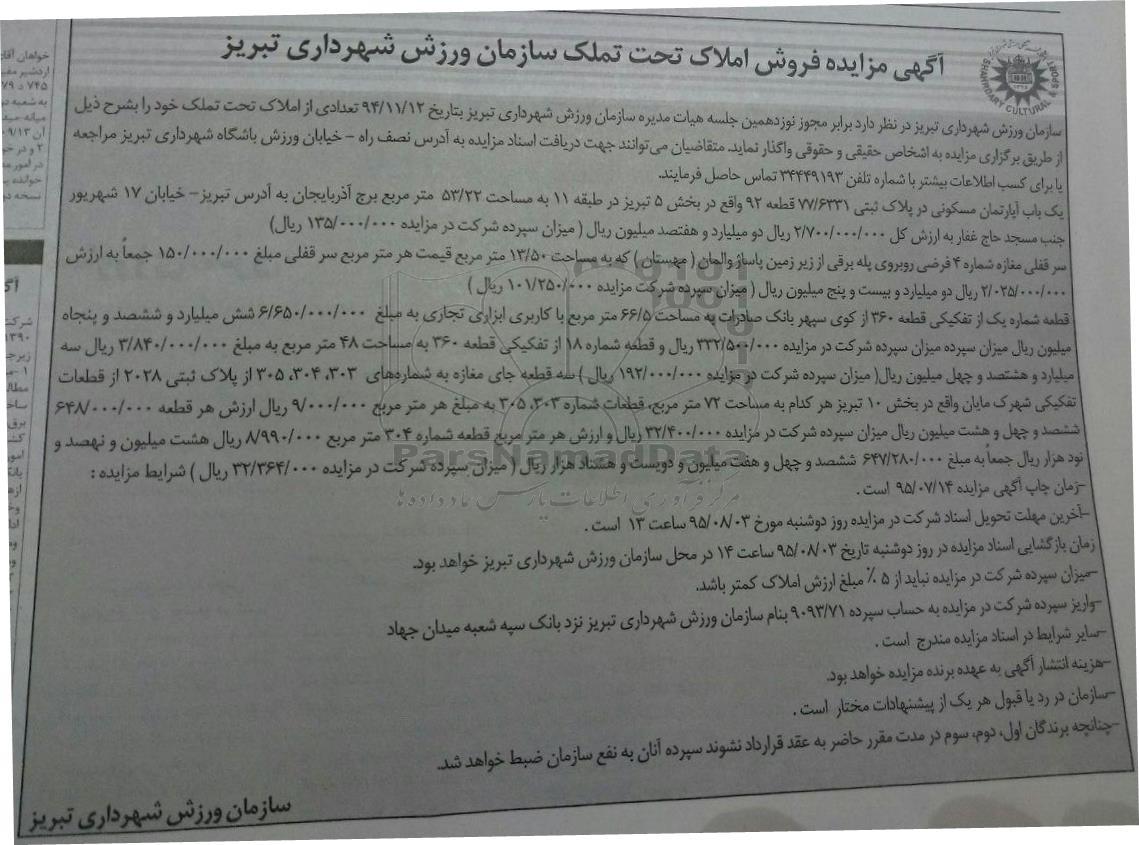 آگهی مزایده فروش املاک تحت تملک سازمان ورزش شهرداری تبریز
SHAHRDARY CULTURAL & SPORT
سازمان ورزش شهرداری تبریز در نظر دارد برابر مجوز نوزدهمین جلسه هیات مدیره سازمان ورزش شهرداری تبریز بتاریخ ۹۴/۱۱/۱۲ تعدادی از املاک تحت تملک خود را بشرح ذیل
از طریق برگزاری مزایده به اشخاص حقیقی و حقوقی واگذار نماید. متقاضیان می‌توانند جهت دریافت اسناد مزایده به آدرس نصف راه – خیابان ورزش باشگاه شهرداری تبریز مراجعه
یا برای کسب اطلاعات بیشتر با شماره تلفن ۳۴۴۴۹۱۹۳ تماس حاصل فرمایند.
یک باب آپارتمان مسکونی در پلاک ثبتی ۷۷/۶۳۳۱ قطعه ۹۲ واقع در بخش ۵ تبریز در طبقه ۱۱ به مساحت ۵۳/۲۲ متر مربع برج آذربایجان به آدرس تبریز– خیابان ۱۷ شهریور
جنب مسجد حاج غفار به ارزش کل ۲/۷۰۰/۰۰۰/۰۰۰ ریال دو میلیارد و هفتصد میلیون ریال ( میزان سپرده شرکت در مزایده ۱۳۵/۰۰۰/۰۰۰ ریال)
سر قفلی مغازه شماره ۴ فرضی روبروی پله برقی از زیر زمین پاساژ والمان ( مهستان ) که به مساحت ۱۳/۵۰ متر مربع قیمت هر متر مربع سر قفلی مبلغ ۱۵۰/۰۰۰/۰۰۰ جمعاً به ارزش
۲/۰۲۵/۰۰۰/۰۰۰ ریال دو میلیارد و بیست و پنج میلیون ریال ( میزان سپرده شرکت مزایده ۱۰۱/۲۵۰/۰۰۰ ریال )
قطعه شماره یک از تفکیکی قطعه ۳۶۰ از کوی سپهر بانک صادرات به مساحت ۶۶/۵ متر مربع با کاربری ابزاری تجاری به مبلغ ۶/۶۵۰/۰۰۰/۰۰۰ شش میلیارد و ششصد و پنجاه
میلیون ریال میزان سپرده میزان سپرده شرکت در مزایده ۳۳۲/۵۰۰/۰۰۰ ریال و قطعه شماره ۱۸ از تفکیکی قطعه ۳۶۰ به مساحت ۴۸ متر مربع به مبلغ ۳/۸۴۰/۰۰۰/۰۰۰ ریال سه
میلیارد و هشتصد و چهل میلیون ریال( میزان سپرده شرکت در مزایده ۱۹۲/۰۰۰/۰۰۰ ریال ) سه قطعه جای مغازه به شماره‌های ۳۰۳، ۳۰۴، ۳۰۵ از پلاک ثبتی ۲۰۲۸ از قطعات
تفکیکی شهرک مایان واقع در بخش ۱۰ تبریز هر کدام به مساحت ۷۲ متر مربع، قطعات شماره ۳۰۳، ۳۰۵ به مبلغ هر متر مربع ۹/۰۰۰/۰۰۰ ریال ارزش هر قطعه ۶۴۸/۰۰۰/۰۰۰
ششصد و چهل و هشت میلیون ریال میزان سپرده شرکت در مزایده ۳۲/۴۰۰/۰۰۰ ریال و ارزش هر متر مربع قطعه شماره ۳۰۴ متر مربع ۸/۹۹۰/۰۰۰ ریال هشت میلیون و نهصد و
نود هزار ریال جمعاً به مبلغ ۶۴۷/۲۸۰/۰۰۰ ششصد و چهل و هفت میلیون و دویست و هشتاد هزار ریال ( میزان سپرده شرکت در مزایده ۳۲/۳۶۴/۰۰۰ ریال ) شرایط مزایده :
–زمان چاپ آگهی مزایده ۹۵/۰۷/۱۴ است .
–آخرین مهلت تحویل اسناد شرکت در مزایده روز دوشنبه مورخ ۹۵/۰۸/۰۳ ساعت ۱۳ است .
زمان بازگشایی اسناد مزایده در روز دوشنبه تاریخ ۹۵/۰۸/۰۳ ساعت ۱۴ در محل سازمان ورزش شهرداری تبریز خواهد بود.
–میزان سپرده شرکت در مزایده نباید از ۵ ٪ مبلغ ارزش املاک کمتر باشد.
–واریز سپرده شرکت در مزایده به حساب سپرده ۹۰۹۳/۷۱ بنام سازمان ورزش شهرداری تبریز نزد بانک سپه شعبه میدان جهاد
–سایر شرایط در اسناد مزایده مندرج است .
–هزینه انتشار آگهی به عهده برنده مزایده خواهد بود.
–سازمان در رد یا قبول هر یک از پیشنهادات مختار است .
–چنانچه برندگان اول، دوم، سوم در مدت مقرر حاضر به عقد قرارداد نشوند سپرده آنان به نفع سازمان ضبط خواهد شد.
سازمان ورزش شهرداری تبریز
ParsNamadData
مرکز فرآوری اطلاعات پارس نماد داده ها